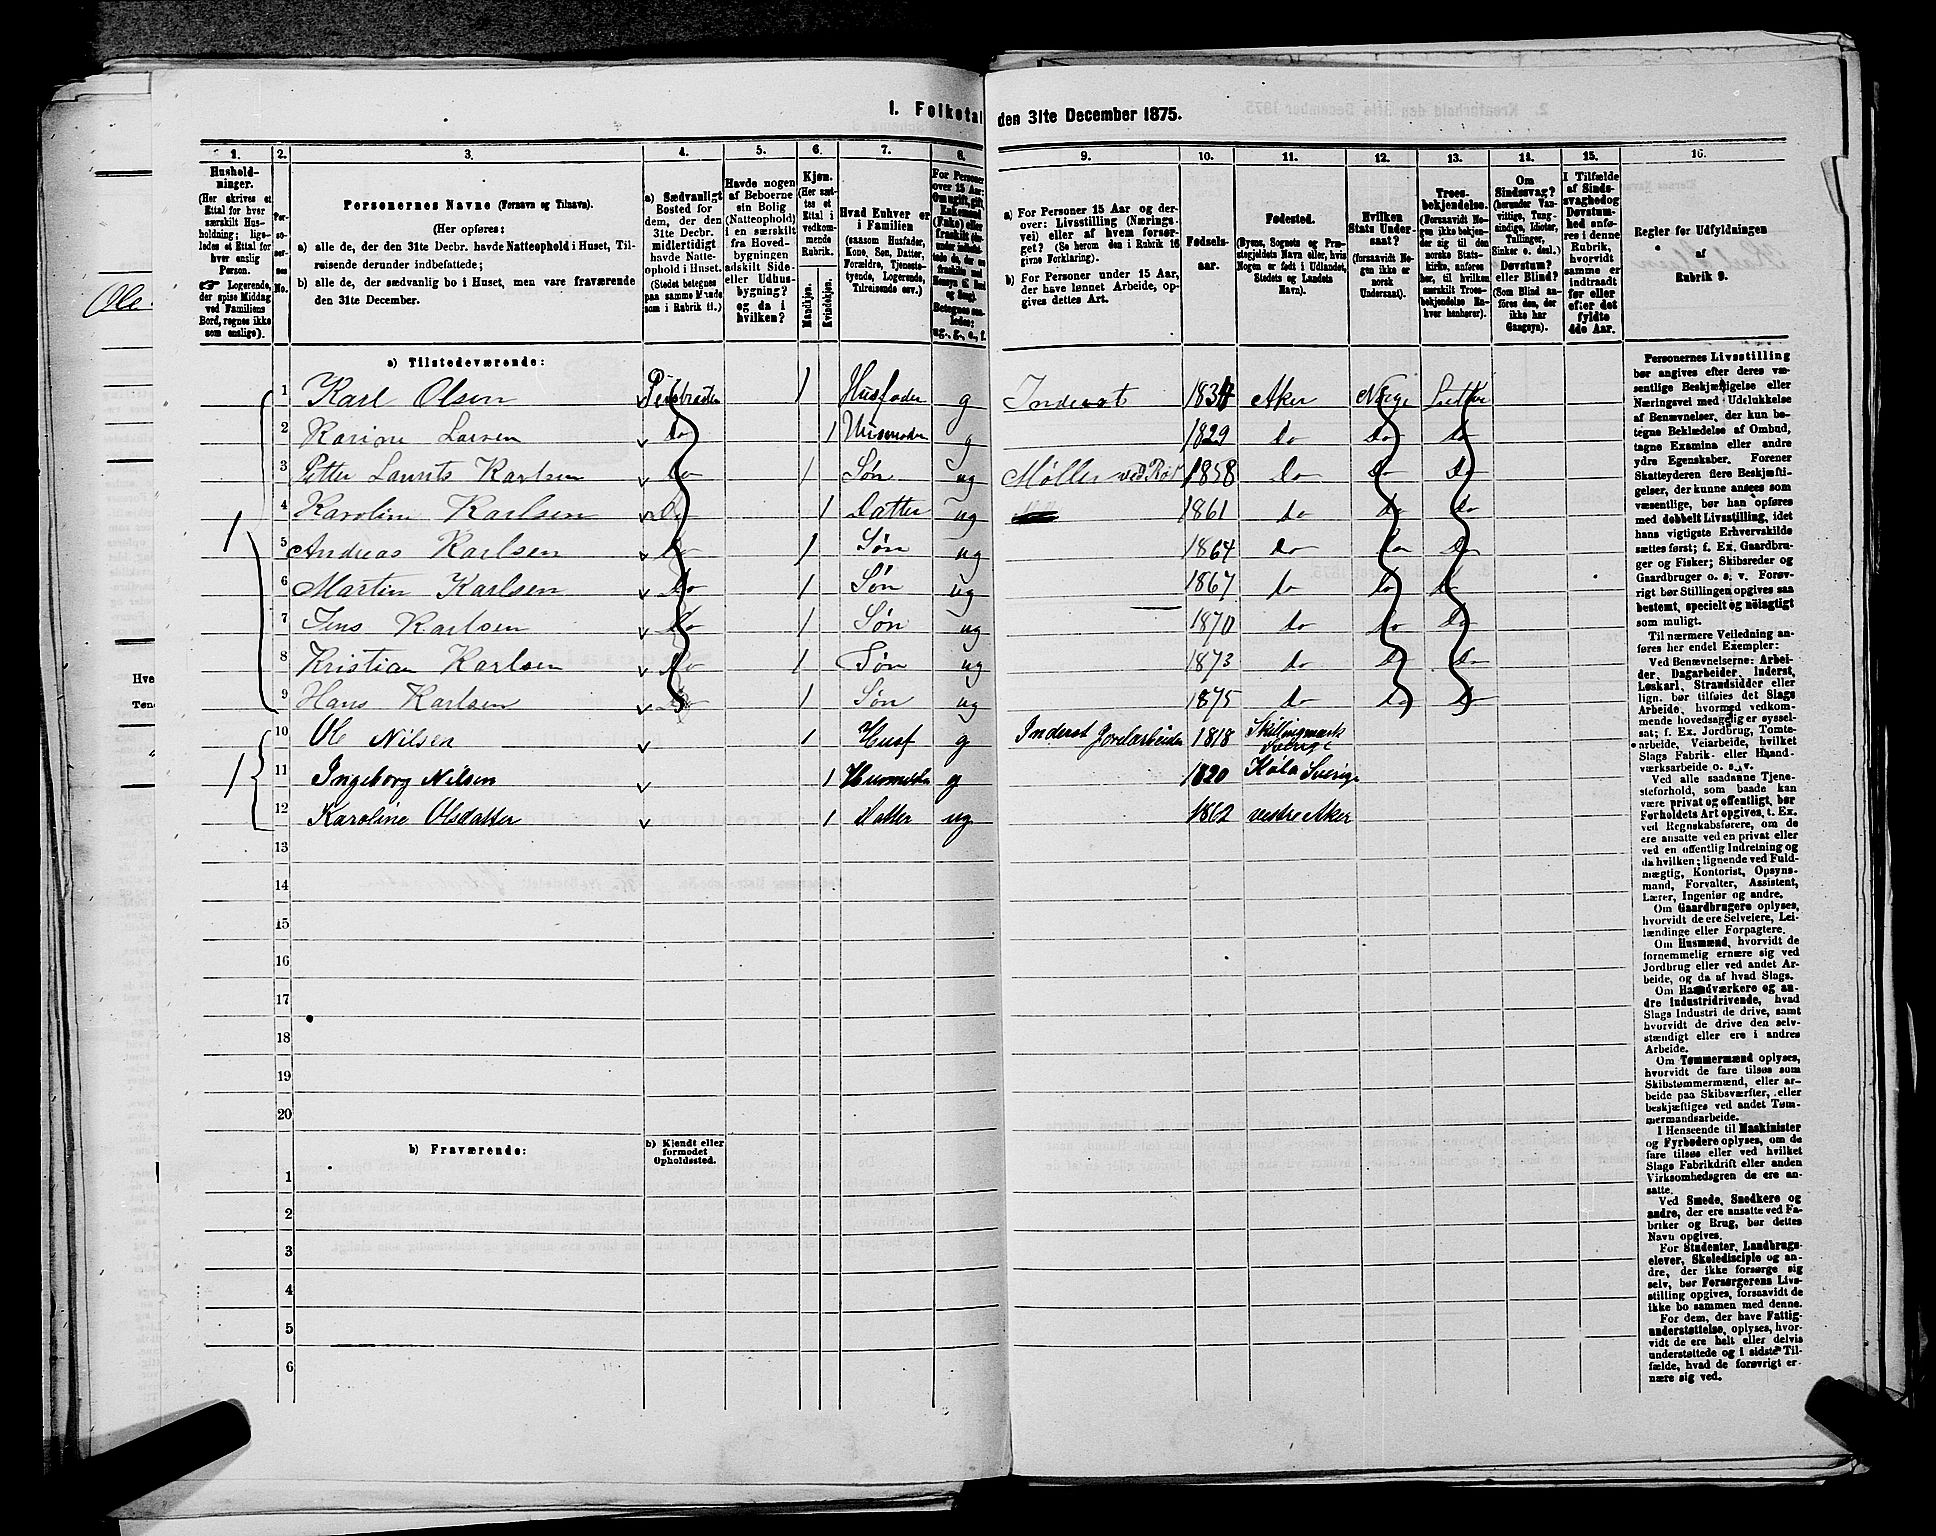 I. Folketal den 31te December 1875.
1. 2. 3. 4. 5. 6. 7. 8. 9. 10. 11. 12. 13. 14. 15. 16.
Hushold-
ninger.
(Her skrives et
Ettal for hver
særskilt Hus-
holdning; lige-
ledes et Ettal for
hver enslig
Person.
☞ Logerende,
der spise Middag
ved Familiens
Bord, regnes ikke
som enslige).
Per-
so-
ner-
nes
No.
Personernes Navne (Fornavn og Tilnavn).
(Her opføres:
a) alle de, der den 31te Decbr. havde Natteophold i Huset, Til-
reisende derunder indbefattede;
b) alle de, der sædvanlig bo i Huset, men vare fraværende
den 31te December.
a) Sædvanligt
Bosted for
dem, der den
31te Decbr.
midlertidigt
havde Natte-
ophold i Huset.
(Stedet betegnes
paa samme Maade
som i Rubrik 11.)
Havde nogen
af Beboerne
sin Bolig
(Natteophold)
i en særskilt
fra Hoved-
bygningen
adskilt Side-
eller Udhus-
bygning?
og da i
hvilken?
Kjøn.
(Her sæt-
tes et
Ettal i
vedkom-
mende
Rubrik.
Mandkjøn.
Kvindekjøn.
Hvad Enhver er
i Familien
(saasom Husfader,
Kone, Søn, Datter,
Forældre, Tjeneste-
tyende, Logerende,
Tilreisende osv.)
For Personer
over 15 Aar:
Om ugift, gift,
Enkemand
(Enke) eller
fraskilt
Betegnes saa-
ledes:
ug., g., e., f.
a) For Personer 15 Aar og der-
over: Livsstilling (Nærings-
vei) eller af hvem forsør-
get? (Se herom den i Rubrik 16
givne Forklaring).
b) For Personer under 15 Aar,
der have lønnet Arbeide, op-
gives dettes Art.
Fødsels-
aar.
Fødested.
(Byens, Sognets og Præ-
stegjeldets Navn eller, hvis
Nogen er født i Udlandet,
Stedets og Landets
Navn).
Hvilken
Stats Under-
saat?
(forsaavidt No-
gen ikke er
norsk
Undersaat).
Troes-
bekjendelse.
(Forsaavidt No-
gen ikke bekjen-
der sig til den
norske Stats-
kirke, anføres
her, til hvilken
særskilt Troes-
bekjendelse En-
hver henhører).
Om
Sindssvag?
(herunder Van-
vittige, Tung-
sindige, Idioter,
Tullinger,
Sinker o. desl.).
Døvstum?
eller Blind?
(Som Blind an-
føres den, der
ikke har
Gangsyn).
I Tilfælde
af Sinds-
svaghed og
Døvstum-
hed anfø-
res i denne
Rubrik,
hvorvidt
samme er
indtraadt
før eller
efter det
fyldte
4de Aar.
Regler for Udfyldningen
af
Rubrik 9.
a) Tilstedeværende:
1 Karl Olsen 1 Husfader g Inderst 1834 Aker Norge
2 Karine Larsen do 1 Husmoder g 1829 do do do
3 Petter Laurits Karlsen do 1 Søn ug Møller 1858 do do do
4 Karoline Karlsen do 1 Datter ug 1861 do do do
1
5 Andreas Karlsen do 1 Søn ug 1864 do do do
6 Martin Karlsen do 1 Søn ug 1867 do do do
7 Jens Karlsen do 1 Søn ug 1870 do do do
8 Kristian Karlsen do 1 Søn ug 1873 do do do
9 Hans Karlsen do 1 Søn ug 1875 do do do
10 Ole Nilsen 1 Husf g Inderst Jordarbeider 1818 Skillingmark Sverige
1 11 Ingeborg Nilsen 1 Husmoder g 1820 Køla Sverige
12 Karoline Olsdatter 1 Datter ug 1862 vestre Aker
13
14
15
16
17
18
19
20
b) Fraværende:
b) Kjendt eller
formodet
Opholdssted.
1
2
3
4
5
6
Personernes Livsstilling
bør angives efter deres væ-
sentlige Beskjæftigelse eller
Næringsvei med Udelukkelse
af Benævnelser, der kun be-
tegne Beklædelse af Ombud,
tagne Examina eller andre
ydre Egenskaber. Forener
Skatteyderen flere Beskjæfti-
gelser, der kunne ansees som
væsentlige, bør han opføres
med dobbelt Livsstilling, idet
hans vigtigste Erhvervskilde
sættes først; f. Ex. Gaardbru-
ger og Fisker; Skibsreder og
Gaardbruger o. s. v. Forøv-
rigt bør Stillingen opgives saa
bestemt, specielt og nøiagtigt
som muligt.
Til nærmere Veiledning an-
føres her endel Exempler:
Ved Benævnelserne: Arbei-
der, Dagarbeider, Inderst,
Løskarl, Strandsidder eller
lign. bør tilføies det Slags
Arbeide, hvormed vedkom-
mende hovedsagelig er syssel-
sat; f. Ex. Jordbrug, Tomte-
arbeide, Veiarbeide, hvilket
Slags Fabrik- eller Haand-
værksarbeide o. s. v.
Ved alle saadanne Tjene-
steforhold, som baade kan
være privat og offentlig, bør
Forholdets Art opgives, t. Ex.
ved Regnskabsførere, om de
ere ansatte ved en privat eller
ved en offentlig Indretning og
da hvilken; lignende ved Fuld-
mægtig, Kontorist, Opsyns-
mand, Forvalter, Assistent,
Lærer, Ingeniør og andre.
Om Gaardbrugere oplyses,
hvorvidt de ere Selveiere, Lei-
lændinge eller Forpagtere.
Om Husmænd, hvorvidt de
fornemmelig ernære sig ved
Jordbrug eller ved andet Ar-
beide, og da af hvad Slags.
Om Haandværkere og an-
dre industridrivende, hvad
Slags Industri de drive, samt
hvorvidt de drive den selv-
stændigt eller ere i andres
Arbeide.
Om Tømmermænd oplyses,
hvorvidt de fare tilsøs som
Skibstømmermænd, eller ar-
beide paa Skibsværfter, eller
beskjæftiges ved andet Tøm-
mermandsarbeide.
I Henseende til Maskinister
og Fyrbødere oplyses, om de
fare tilsøs eller ved hvilket
Slags Fabrikdrift eller anden
Virksomhedsgren de ere an-
satte.
Ved Smede, Snedkere og
andre, der ere ansatte ved Fa-
briker og Brug, bør dettes
Navn opgives.
For Studenter, Landbrugs-
elever, Skoledisciple og an-
dre, der ikke forsørge sig
selv, bør Forsørgerens Livs-
stilling opgives, forsaavidt de
ikke bo sammen med denne.
For dem, der have Fattig-
understøttelse, oplyses, hvor-
vidt de ere helt eller delvis
understøttede og i sidste Til-
fælde, hvad de forøvrigt er-
nære sig ved.